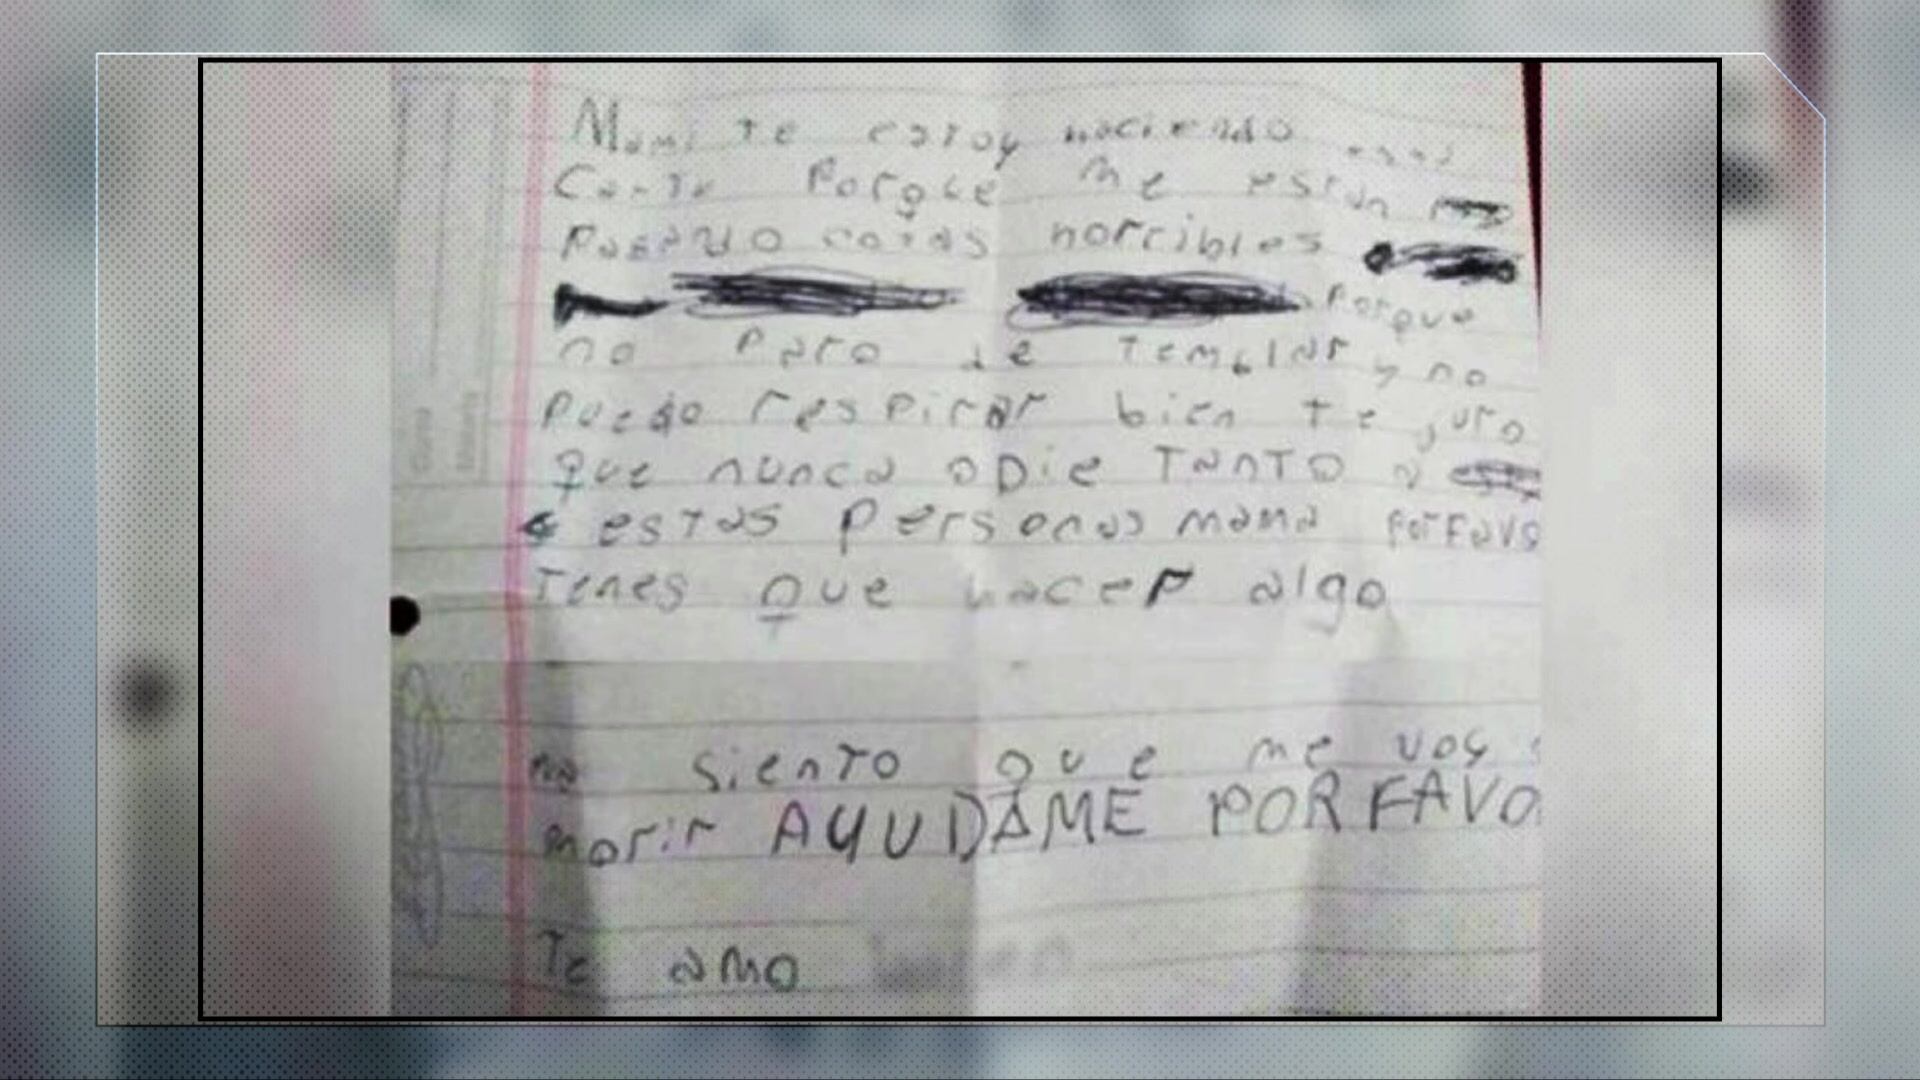 Mami te estoy haciendo esta
Carta Porqce me estan
Pasando cosas horribles
Porque
no paro de Temblar y no
puedo respirar bien te juro
que nunca odie TanTo a
estas personas mama porfavo
Tenes que hacer algo
siento que me voy
morir AYUDAME PORFAVO
Te amo